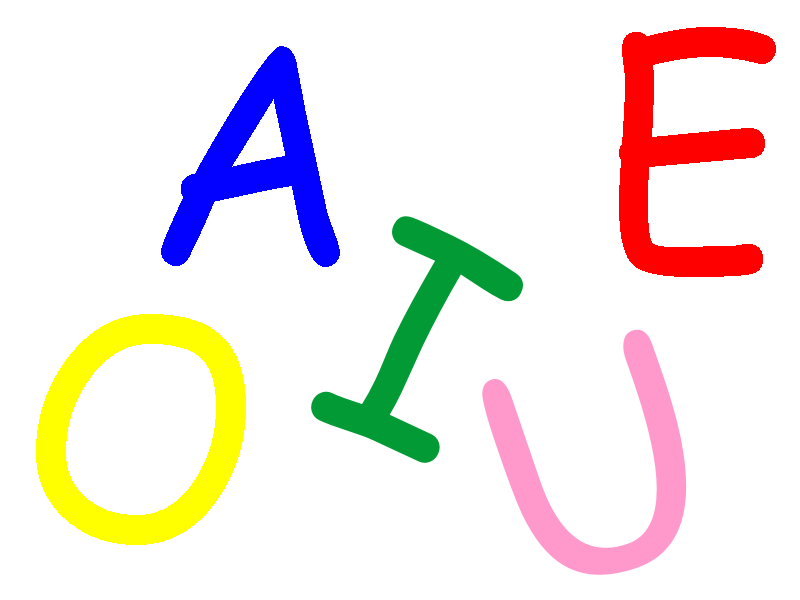 A E
I
O U